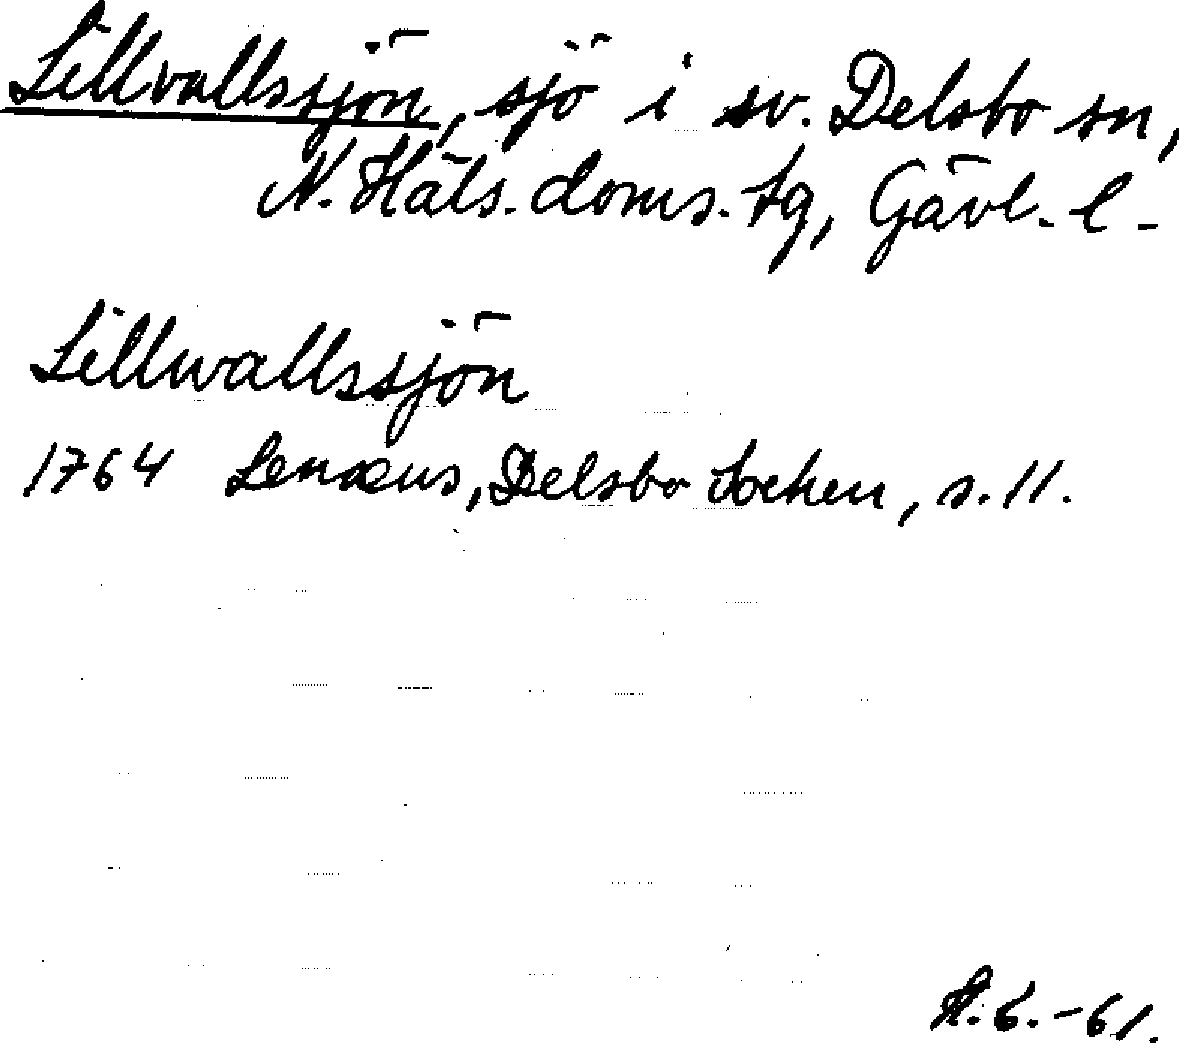 Lillvallssjön, sjö i sv. Delsbo sn,
N. Häls. doms. tg, Gävl. l.
Lillwallssjön
1764 Lenæus, Delsbo Socken, s. 11.
-61.